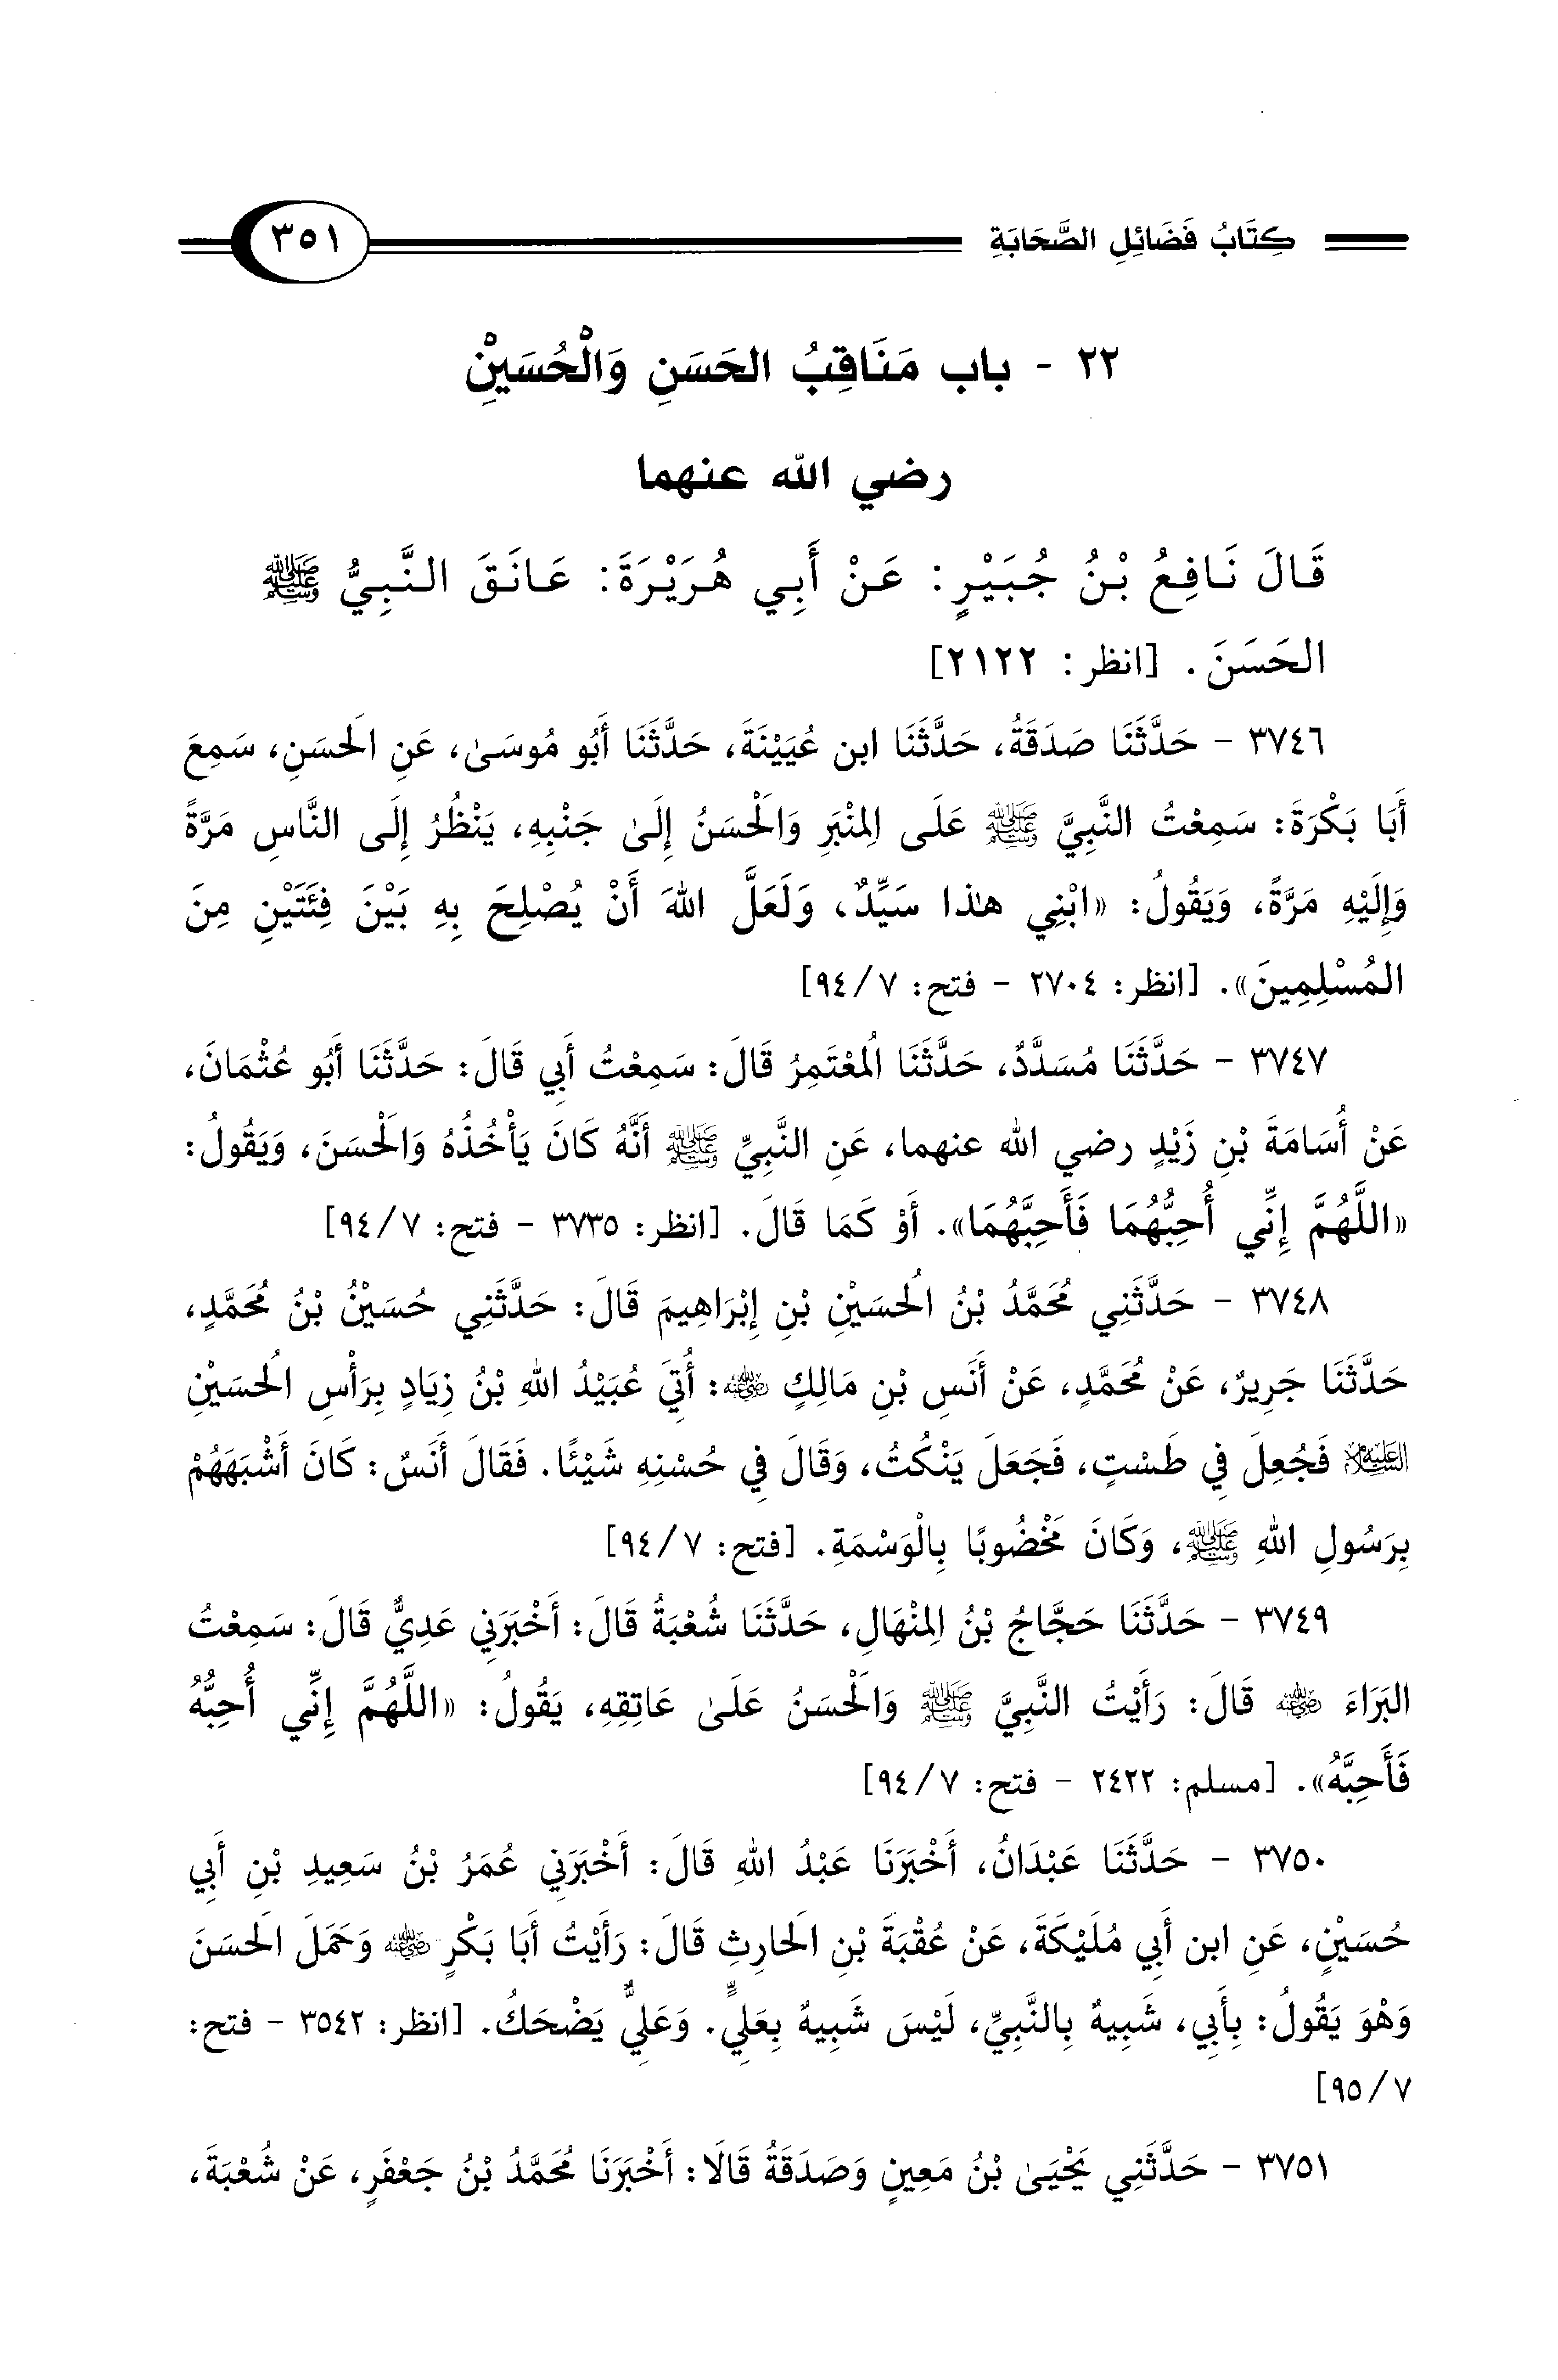 كِتَابُ فَضَائِلِ الصَّحَابَةِ
٣٥١
٢٢ - باب مَنَاقِبُ الحَسَنِ وَالْحُسَيْنِ
رضي الله عنهما
قَالَ نَافِعُ بْنُ جُبَيْرٍ: عَنْ أَبِي هُرَيْرَةَ: عَانَقَ النَّبِيُّ ﷺ
الحَسَنَ. [انظر: ٢١٢٢]
٣٧٤٦ - حَدَّثَنَا صَدَقَةُ، حَدَّثَنَا ابن عُيَيْنَةَ، حَدَّثَنَا أَبُو مُوسَىٰ، عَنِ الَحسَنِ، سَمِعَ
أَبَا بَكْرَةَ: سَمِعْتُ النَّبِيَّ ﷺ عَلَى المِنْبَرِ وَالْحَسَنُ إِلَىٰ جَنْبِهِ، يَنْظُرُ إِلَى النَّاسِ مَرَّةً
وَإِلَيْهِ مَرَّةً، وَيَقُولُ: «ابْنِي هٰذا سَيِّدٌ، وَلَعَلَّ اللهَ أَنْ يُصْلِحَ بِهِ بَيْنَ فِئَتَيْنِ مِنَ
المُسْلِمِينَ». [انظر: ٢٧٠٤ - فتح: ٧/ ٩٤]
٣٧٤٧ - حَدَّثَنَا مُسَدَّدٌ، حَدَّثَنَا الُمعْتَمِرُ قَالَ: سَمِعْتُ أَبِي قَالَ: حَدَّثَنَا أَبُو عُثْمَانَ،
عَنْ أُسَامَةَ بْنِ زَيْدٍ رضي الله عنهما، عَنِ النَّبِيِّ ﷺ أَنَّهُ كَانَ يَأْخُذُهُ وَالَحْسَنَ، وَيَقُولُ:
«اللَّهُمَّ إِنِّي أُحِبُّهُمَا فَأَحِبَّهُمَا». أَوْ كَمَا قَالَ. [انظر: ٣٧٣٥ - فتح: ٧/ ٩٤]
٣٧٤٨ - حَدَّثَنِي مُحَمَّدُ بْنُ الُحسَيْنِ بْنِ إِبْرَاهِيمَ قَالَ: حَدَّثَنِي حُسَيْنُ بْنُ مُحَمَّدٍ،
حَدَّثَنَا جَرِيرٌ، عَنْ مُحَمَّدٍ، عَنْ أَنَسِ بْنِ مَالِكٍ رضي الله عنه: أُتِيَ عُبَيْدُ اللهِ بْنُ زِيَادٍ بِرَأْسِ الُحسَيْنِ
عليه السلام فَجُعِلَ فِي طَسْتٍ، فَجَعَلَ يَنْكُتُ، وَقَالَ فِي حُسْنِهِ شَيْئًا. فَقَالَ أَنَسٌ: كَانَ أَشْبَهَهُمْ
بِرَسُولِ اللهِ ﷺ، وَكَانَ مَخْضُوبًا بِالْوَسْمَةِ. [فتح: ٧/ ٩٤]
٣٧٤٩ - حَدَّثَنَا حَجَّاجُ بْنُ المِنْهَالِ، حَدَّثَنَا شُعْبَةُ قَالَ: أَخْبَرَنِي عَدِيٌّ قَالَ: سَمِعْتُ
البَرَاءَ رضي الله عنه قَالَ: رَأَيْتُ النَّبِيَّ ﷺ وَالْحَسَنُ عَلَىٰ عَاتِقِهِ، يَقُولُ: «اللَّهُمَّ إِنِّي أُحِبُّهُ
فَأَحِبَّهُ». [مسلم: ٢٤٢٢ - فتح: ٧/ ٩٤]
٣٧٥٠ - حَدَّثَنَا عَبْدَانُ، أَخْبَرَنَا عَبْدُ اللهِ قَالَ: أَخْبَرَنِي عُمَرُ بْنُ سَعِيدِ بْنِ أَبِي
حُسَيْنٍ، عَنِ ابن أَبِي مُلَيْكَةَ، عَنْ عُقْبَةَ بْنِ الَحارِثِ قَالَ: رَأَيْتُ أَبَا بَكْرٍ رضي الله عنه وَحَمَلَ الَحسَنَ
وَهْوَ يَقُولُ: بِأَبِي، شَبِيهٌ بِالنَّبِيِّ، لَيْسَ شَبِيهٌ بِعَلِيٍّ. وَعَلِيٌّ يَضْحَكُ. [انظر: ٣٥٤٢ - فتح:
٧/ ٩٥]
٣٧٥١ - حَدَّثَنِي يَحْيَىٰ بْنُ مَعِينٍ وَصَدَقَةُ قَالَا: أَخْبَرَنَا مُحَمَّدُ بْنُ جَعْفَرٍ، عَنْ شُعْبَةَ،